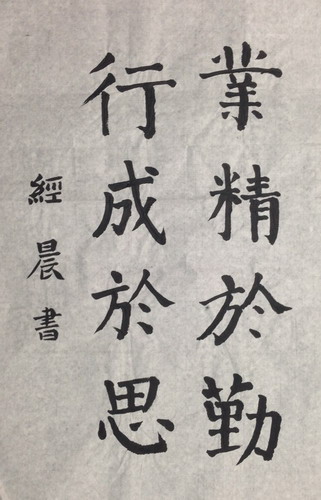 業精於勤
行成於思
經晨書